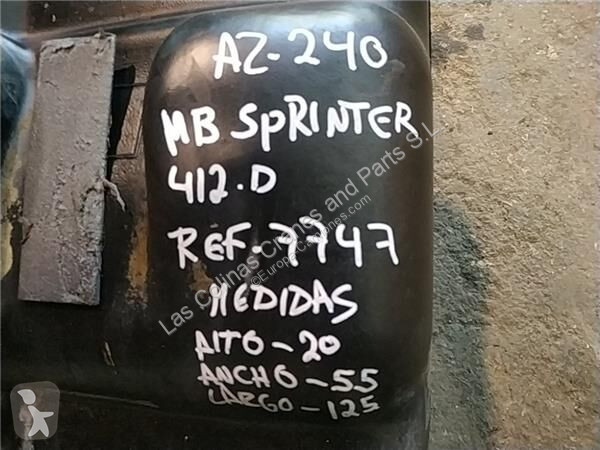 AZ-240
MB SPRINTER
412.D
REF-7747
MEDIDAS
AITO-20
ANCHO-55
LARGO-125
Las Colinas Cranes and Parts S.L.
©EuropaCamiones.com